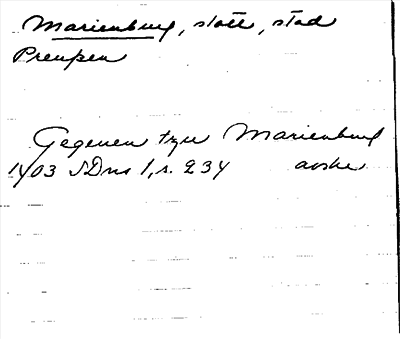 Marienburg, slott, stad
Preußen
Gegeuen tzu Marienburg
1403 SDns 1, s. 234 avskr